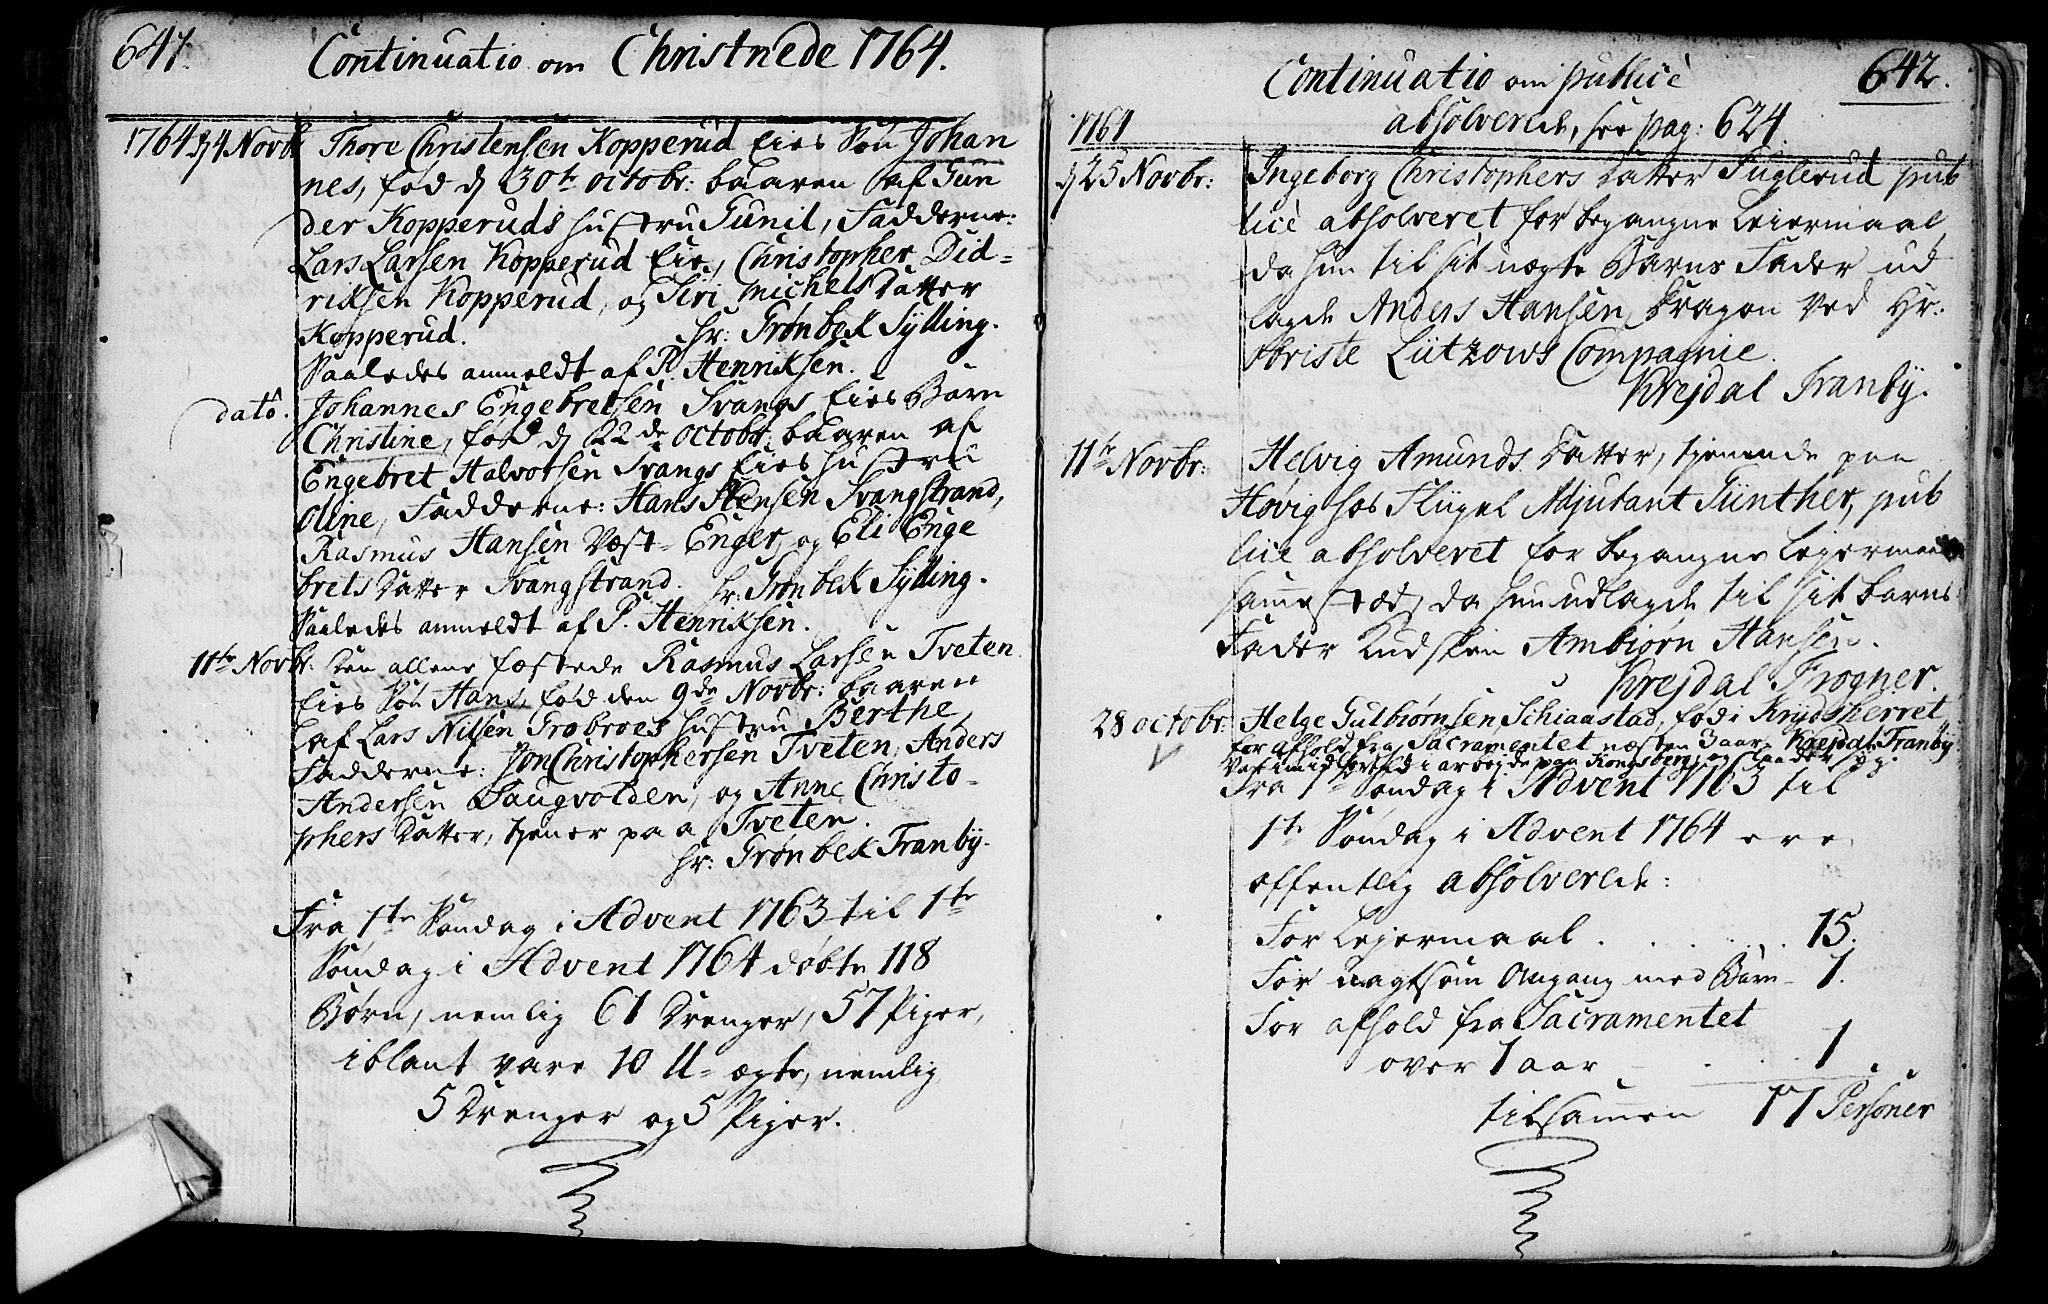 641. Continuatio om Christnede 1764.
1764 d 4 Novbr Thore Christensen Kopperud Eies Søn Johan
nes, fød d 30te octobr: baaren af Gun
der Kopperuds hustru Gunil, Fadderne:
Lars Larsen Kopperud Eie, Christopher Did=
riksen Kopperud, og Siri Michels Datter
Kopperud. hr: Grønbek Sylling.
Saaledes anmeldt af P. Henriksen.
dato. Johannes Engebretsen Svangs Eies Barn
Christine, fød d 22de octobr: baaren af
Engebret Halvorsen Svangs Eies hustru
Oline, Fadderne: Hans Stensen Svangstrand,
Rasmus Hansen Væst-Enger, og Eli Enge
brets Datter Svangstrand. hr: Grønbek Sylling.
Saaledes anmeldt af P. Henriksen.
11te Novbr: Den allene fæstede Rasmus Larsen Tveten
Eies Søn Hans, fød den 9de Novbr: baaren
af Lars Nilsen Grobroes hustru Berthe,
Fadderne: Jon Christophersen Tveten, Anders
Andersen Saugvolden, og Anne Christo-
phers Datter, tjener paa Tveten.
hr: Grønbek Tranby.
Fra 1te Søndag i Advent 1763 til 1te
Søndag i Advent 1764 døbte 118
Børn, nemlig 61 Drenger, 57 Piger,
iblant vare 10 U-ægte, nemlig
5 Drenger og 5 Piger.
Continuatio om publicè 642.
1764 absolverede, see pag: 624
d 25 Novbr: Ingeborg Christophers Datter Fuglerud pub
licè absolveret for begangne Leiermaal
da hun til sit uægte Barns Fader ud
lagde Anders Hansen, Dragon ved Hr:
Obriste Lützows Compagnie.
Krejdal Tranby.
11te Novbr: Helvig Amunds Datter, tjenende paa
Høvig hos Flügel Adjutant Günther, pub
licè absolveret for begangne Lejermaal
samestæd, da hun udlagde til sit barns
Fader Kudsken Ambiørn Hansen.
Krejdal Frogner.
28 octobr: Helge Gulbiørnsen Schiaastad, fød i Krydsherret
for afhold fra Sacramentet næsten 3 aar. Krejdal Tranby
Var imidlertid i arbejde paa Kongsberg og
Fra 1te Søndag i Advent 1763 til
1te Søndag i Advent 1764 ere
offentlig absolverede:
For Lejermaal . . . . . . 15.
For uagtsom Omgang med Børn - 1.
For afhold fra Sacramentet
over 1 aar . . . 1.
tilsamen 17 Personer